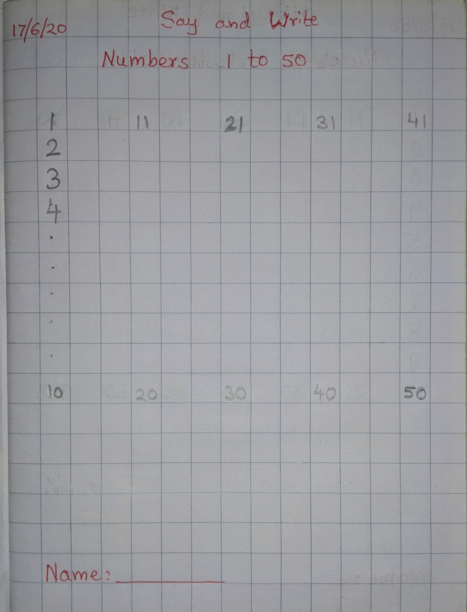 17/6/20 Say and Write
Numbers 1 to 50
1 11 21 31 41
2
3
4
.
.
.
.
.
10 20 30 40 50
Name: ___________